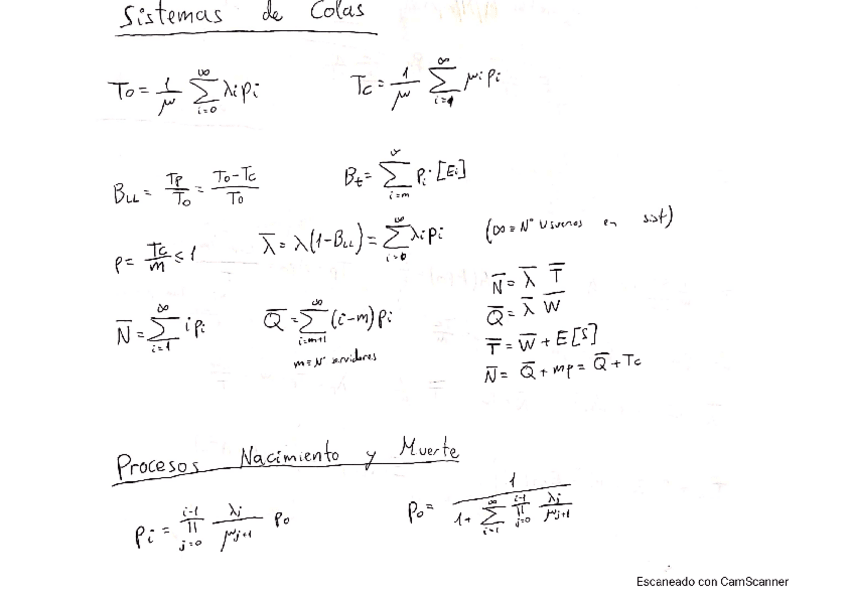 Sistemas de Colas
To = 1/μ ∑_{i=0}^{∞} λi pi    Tc = 1/μ ∑_{i=1}^{∞} μi pi
BLL = Tp/To = (To-Tc)/To    Bt = ∑_{i=m}^{∞} Pi·[Ei]
ρ = Tc/m ≤ 1    λ̅ = λ(1-BLL) = ∑_{i=0}^{∞} λi pi    (∞ = Nº Usuarios en sist)
N̅ = ∑_{i=1}^{∞} i pi    Q̅ = ∑_{i=m+1}^{∞} (i-m) pi
m = Nº servidores
N̅ = λ̅ T̅
Q̅ = λ̅ W̅
T̅ = W̅ + E[S]
N̅ = Q̅ + mρ = Q̅ + Tc
Procesos Nacimiento y Muerte
pi = ∏_{j=0}^{i-1} λj/μj+1 po    po = 1/(1+ ∑_{i=1}^{∞} ∏_{j=0}^{i-1} λj/μj+1)
Escaneado con CamScanner